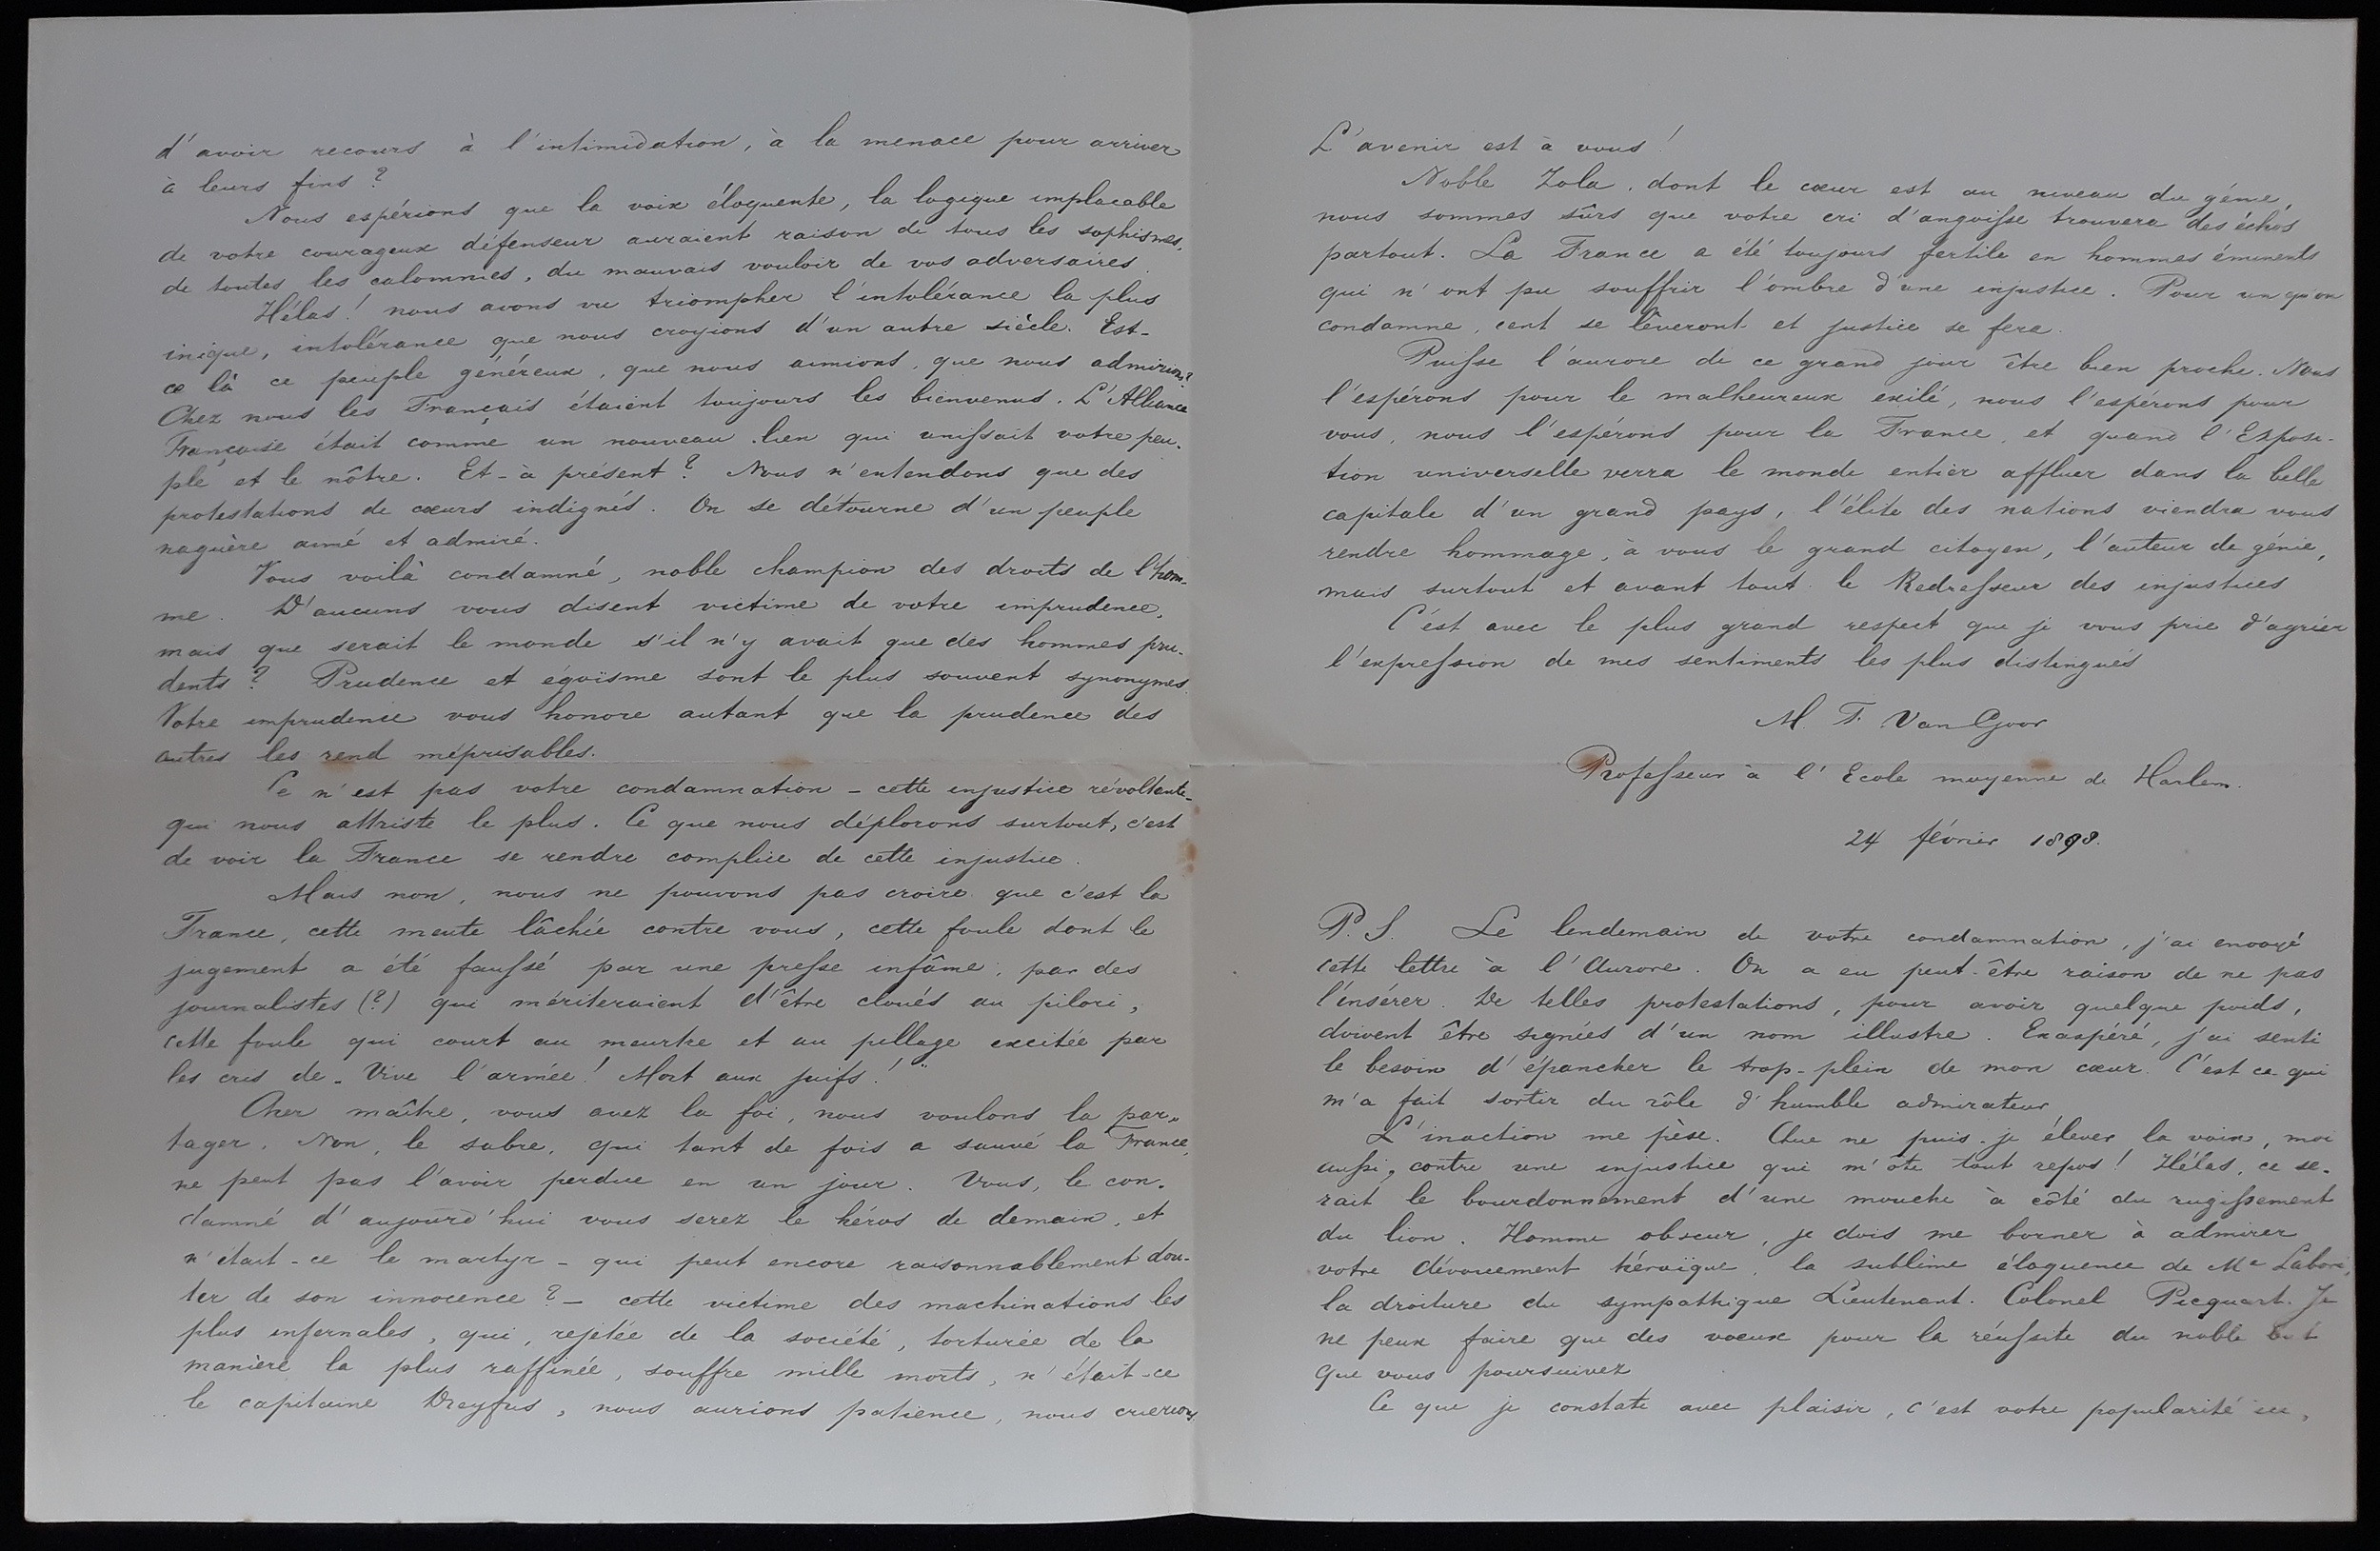 d'avoir recours à l'intimidation, à la menace pour arriver
à leurs fins ?
Nous espérions que la voix éloquente, la logique implacable
de votre courageux défenseur auraient raison de tous les sophismes,
de toutes les calomnies, du mauvais vouloir de vos adversaires.
Hélas ! nous avons vu triompher l'intolérance la plus
inique, intolérance que nous croyions d'un autre siècle. Est-
ce là ce peuple généreux, que nous aimions, que nous admirions ?
Chez nous les Français étaient toujours les bienvenus. L'Alliance
Française était comme un nouveau lien qui unissait votre peu-
ple et le nôtre. Et - à présent ? Nous n'entendons que des
protestations de cœurs indignés. On se détourne d'un peuple
naguère aimé et admiré.
Vous voilà condamné, noble champion des droits de l'hom-
me. D'aucuns vous disent victime de votre imprudence,
mais que serait le monde s'il n'y avait que des hommes pru-
dents ? Prudence et égoïsme sont le plus souvent synonymes.
Votre imprudence vous honore autant que la prudence des
autres les rend méprisables.
Ce n'est pas votre condamnation - cette injustice révoltante -
qui nous attriste le plus. Ce que nous déplorons surtout, c'est
de voir la France se rendre complice de cette injustice.
Mais non, nous ne pouvons pas croire que c'est la
France, cette meute lâchée contre vous, cette foule dont le
jugement a été faussé par une presse infâme, par des
journalistes (?) qui mériteraient d'être cloués au pilori,
cette foule qui court au meurtre et au pillage excitée par
les cris de „ Vive l'armée ! Mort aux juifs ! "
Cher maître, vous avez la foi, nous voulons la par-
tager. Non, le sabre, qui tant de fois a sauvé la France,
ne peut pas l'avoir perdue en un jour. Vous, le con-
damné d'aujourd'hui vous serez le héros de demain, et
n'était-ce le martyr - qui peut encore raisonnablement dou-
ter de son innocence ? - cette victime des machinations les
plus infernales, qui, rejetée de la société, torturée de la
manière la plus raffinée, souffre mille morts, n'était-ce
le capitaine Dreyfus, nous aurions patience, nous crierions
L'avenir est à vous !
Noble Zola, dont le cœur est au niveau du génie,
nous sommes sûrs que votre cri d'angoisse trouvera des échos
partout. La France a été toujours fertile en hommes éminents
qui n'ont pu souffrir l'ombre d'une injustice. Pour un qu'on
condamne, cent se lèveront et justice se fera.
Puisse l'aurore de ce grand jour être bien proche. Nous
l'espérons pour le malheureux exilé, nous l'espérons pour
vous, nous l'espérons pour la France, et quand l'Exposi-
tion universelle verra le monde entier affluer dans la belle
capitale d'un grand pays, l'élite des nations viendra vous
rendre hommage, à vous le grand citoyen, l'auteur de génie,
mais surtout et avant tout le Redresseur des injustices
C'est avec le plus grand respect que je vous prie d'agréer
l'expression de mes sentiments les plus distingués
M. F. Van Goor
Professeur à l'Ecole moyenne de Harlem.
24 février 1898.
P. S. Le lendemain de votre condamnation, j'ai envoyé
cette lettre à l'Aurore. On a eu peut-être raison de ne pas
l'insérer. De telles protestations, pour avoir quelque poids,
doivent être signées d'un nom illustre. Exaspéré, j'ai senti
le besoin d'épancher le trop-plein de mon cœur. C'est ce qui
m'a fait sortir du rôle d'humble admirateur
L'inaction me pèse. Que ne puis-je élever la voix, moi
aussi, contre une injustice qui m'ôte tout repos ! Hélas, ce se-
rait le bourdonnement d'une mouche à côté du rugissement
du lion. Homme obscur, je dois me borner à admirer
votre dévouement héroïque, la sublime éloquence de Me Labori,
la droiture du sympathique Lieutenant-Colonel Picquart. Je
ne peux faire que des voeux pour la réussite du noble but
que vous poursuivez
Ce que je constate avec plaisir, c'est votre popularité